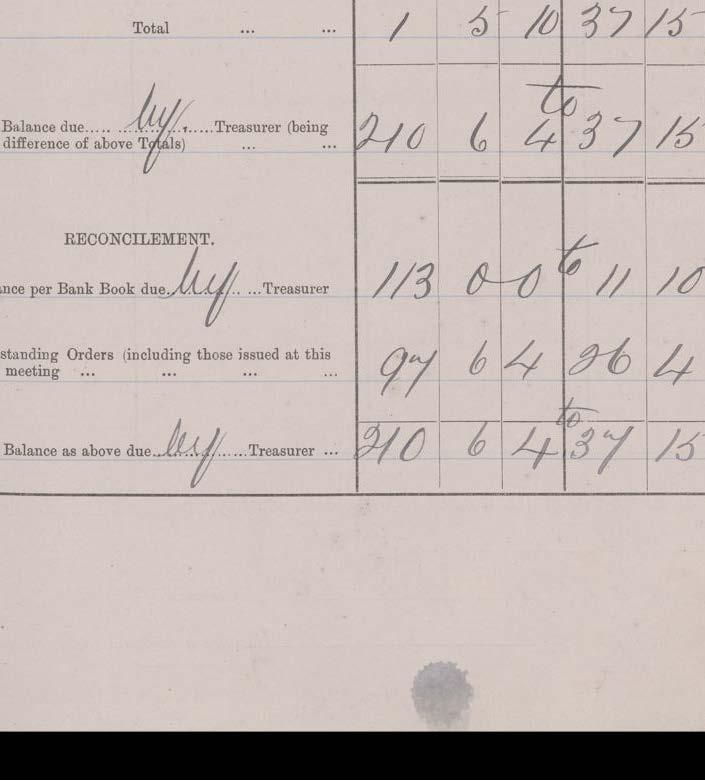 Total ... ... 1 5 10 37 15
Balance due..... by ......Treasurer (being to
difference of above Totals) ... ... 210 6 4 37 15
RECONCILEMENT.
nce per Bank Book due. by .. ...Treasurer 113 0 0 to 11 10
standing Orders (including those issued at this
meeting ... ... ... ... 97 6 4 26 4
to
Balance as above due.. by ......Treasurer ... 210 6 4 37 15